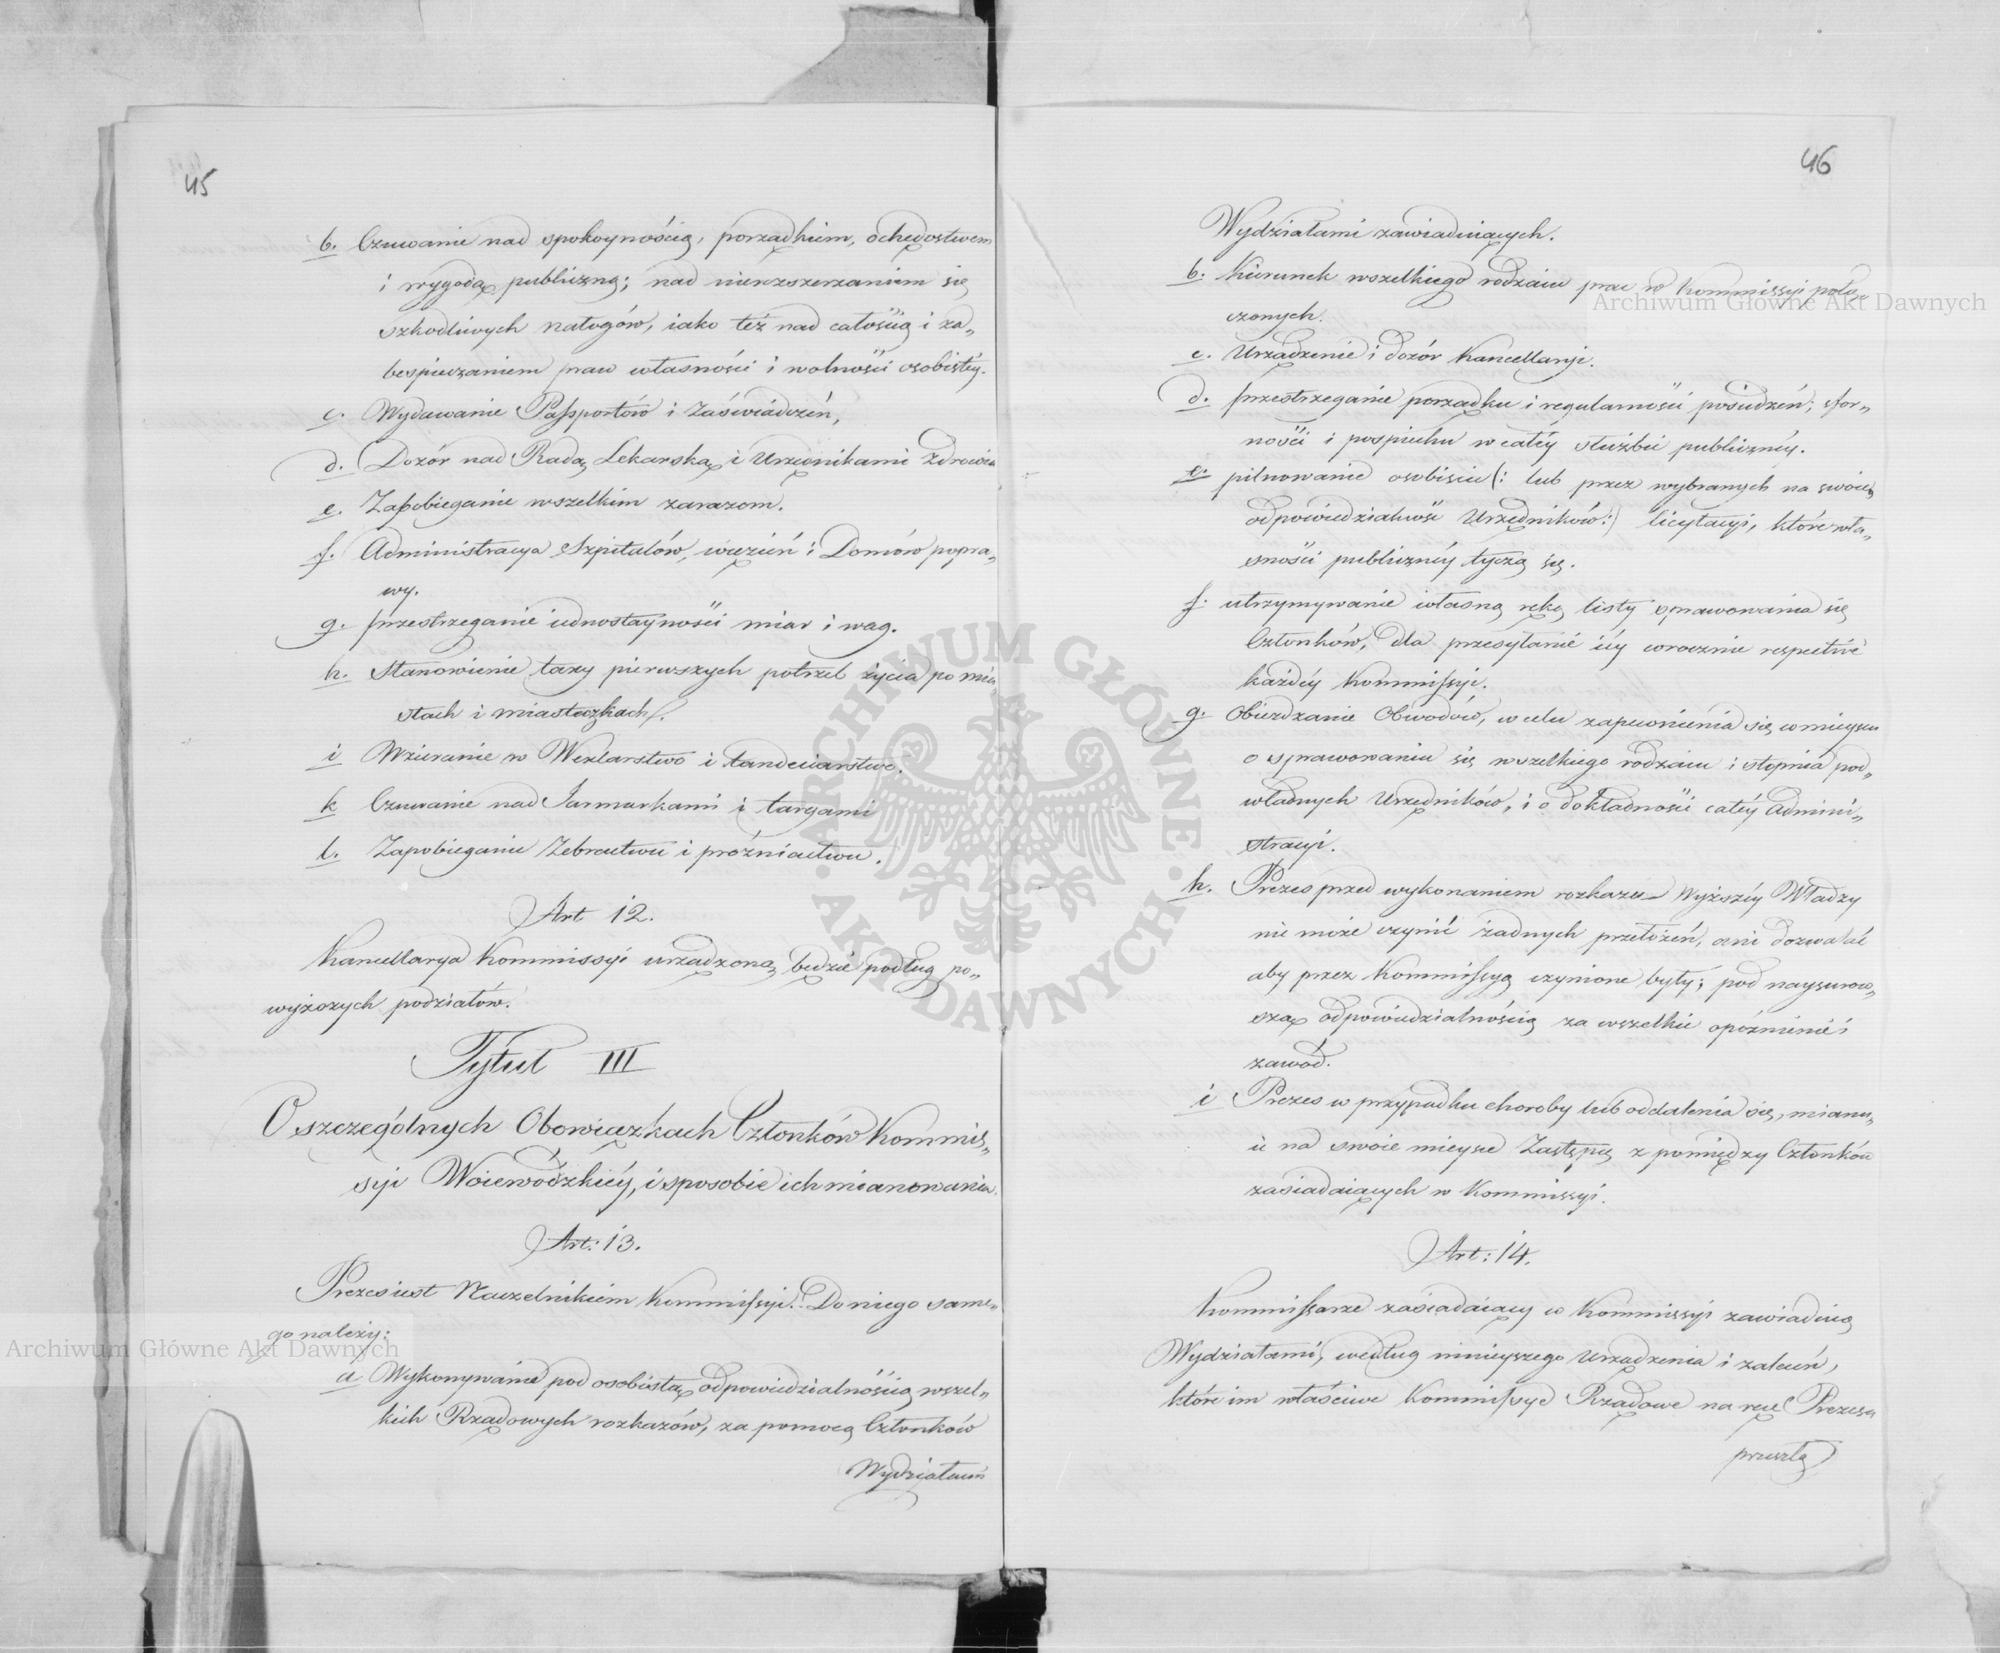 45
b. Czuwanie nad spokoynością, porządkiem, ochędostwem
i wygodą publiczną; nad nierozszerzaniem się
szkodliwych nałogów, iako też nad całością i za„
bespieczaniem praw własności i wolności osobistéy.
c. Wydawanie Passportów i Zaświadczeń,
d. Dozór nad Radą Lekarską i Urzędnikami Zdrowia
e. Zapobieganie wszelkim zarazom.
f. Administracya Szpitalów, więzień i Domów popra„
wy.
g. przestrzeganie iednostayności miar i wag.
h. Stanowienie taxy pierwszych potrzeb życia po mia
stach i miasteczkach.
i Wzieranie w Wexlarstwo i tandeciarstwo.
k Czuwanie nad Jarmarkami i targami
l. Zapobieganie Żebractwu i próżniactwu.
Art 12.
Kancellarya Kommissyi urządzoną będzie podług po„
wyższych podziałów.
Tytuł III
O szczególnych Obowiązkach Członków Kommis„
syi Woiewódzkiéy, i sposobie ich mianowania.
Art: 13.
Prezes iest Naczelnikiem Kommissyi. Do niego same„
go należy:
a Wykonywanie pod osobistą odpowiedzialnością wszel„
kich Rządowych rozkazów, za pomocą Członków
Wydziałami
46
Wydziałami zawiaduiących.
b. Kierunek wszelkiego rodzaiu prac w Kommissyi poło„
czonych.
c. Urządzenie i dozór Kancellaryi.
d. przestrzeganie porządku i regularności posiedzeń, sfor„
ności i pospiechu w całéy służbie publicznéy.
e. pilnowanie osobiście (: lub przez wybranych na swoią
odpowiedzialność Urzędników :) licytacyi, które wła„
sności publicznéy tyczą się.
f. utrzymywanie własną ręką listy sprawowania się
Członków, dla przesyłania iéy corocznie respective
każdéy Kommissyi.
g. Obieżdżanie Obwodów, w celu zapewnienia się w mieyscu
o sprawowaniu się wszelkiego rodzaiu i stopnia pod„
władnych Urzędników, i o dokładności całéy Admini„
stracyi.
h. Prezes przed wykonaniem rozkazu Wyższéy Władzy
nie może czynić żadnych przełożeń, ani dozwalać
aby przez Kommissyą czynione były; pod naysurow„
szą odpowiedzialnością za wszelkie opóźnienie i
zawód.
i Prezes w przypadku choroby lub oddalenia się, mianu„
ie na swoie mieysce Zastępcę z pomiędzy Członków
zasiadaiących w Kommissyi.
Art: 14.
Kommissarze zasiadaiący w Kommissyi zawiaduią
Wydziałami, według ninieyszego Urządzenia i zaleceń,
które im właściwe Kommissye Rządowe na ręce Prezesa
prześlą
Archiwum Główne Akt Dawnych
Archiwum Główne Akt Dawnych
ARCHIWUM GŁÓWNE
AKT DAWNYCH